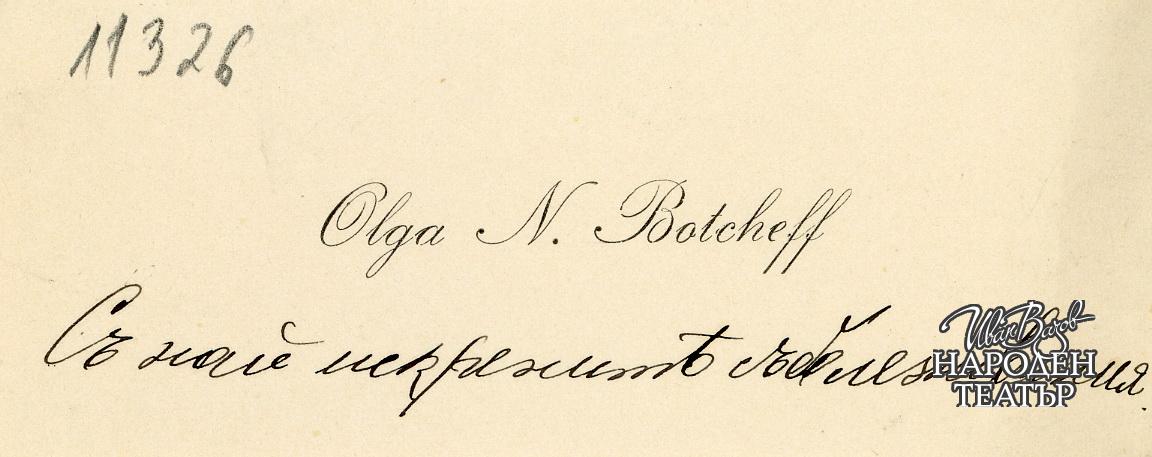 11326
Olga N. Botcheff
Съ най искренитѣ съболезнования.
Иван Вазов
НАРОДЕН
ТЕАТЪР